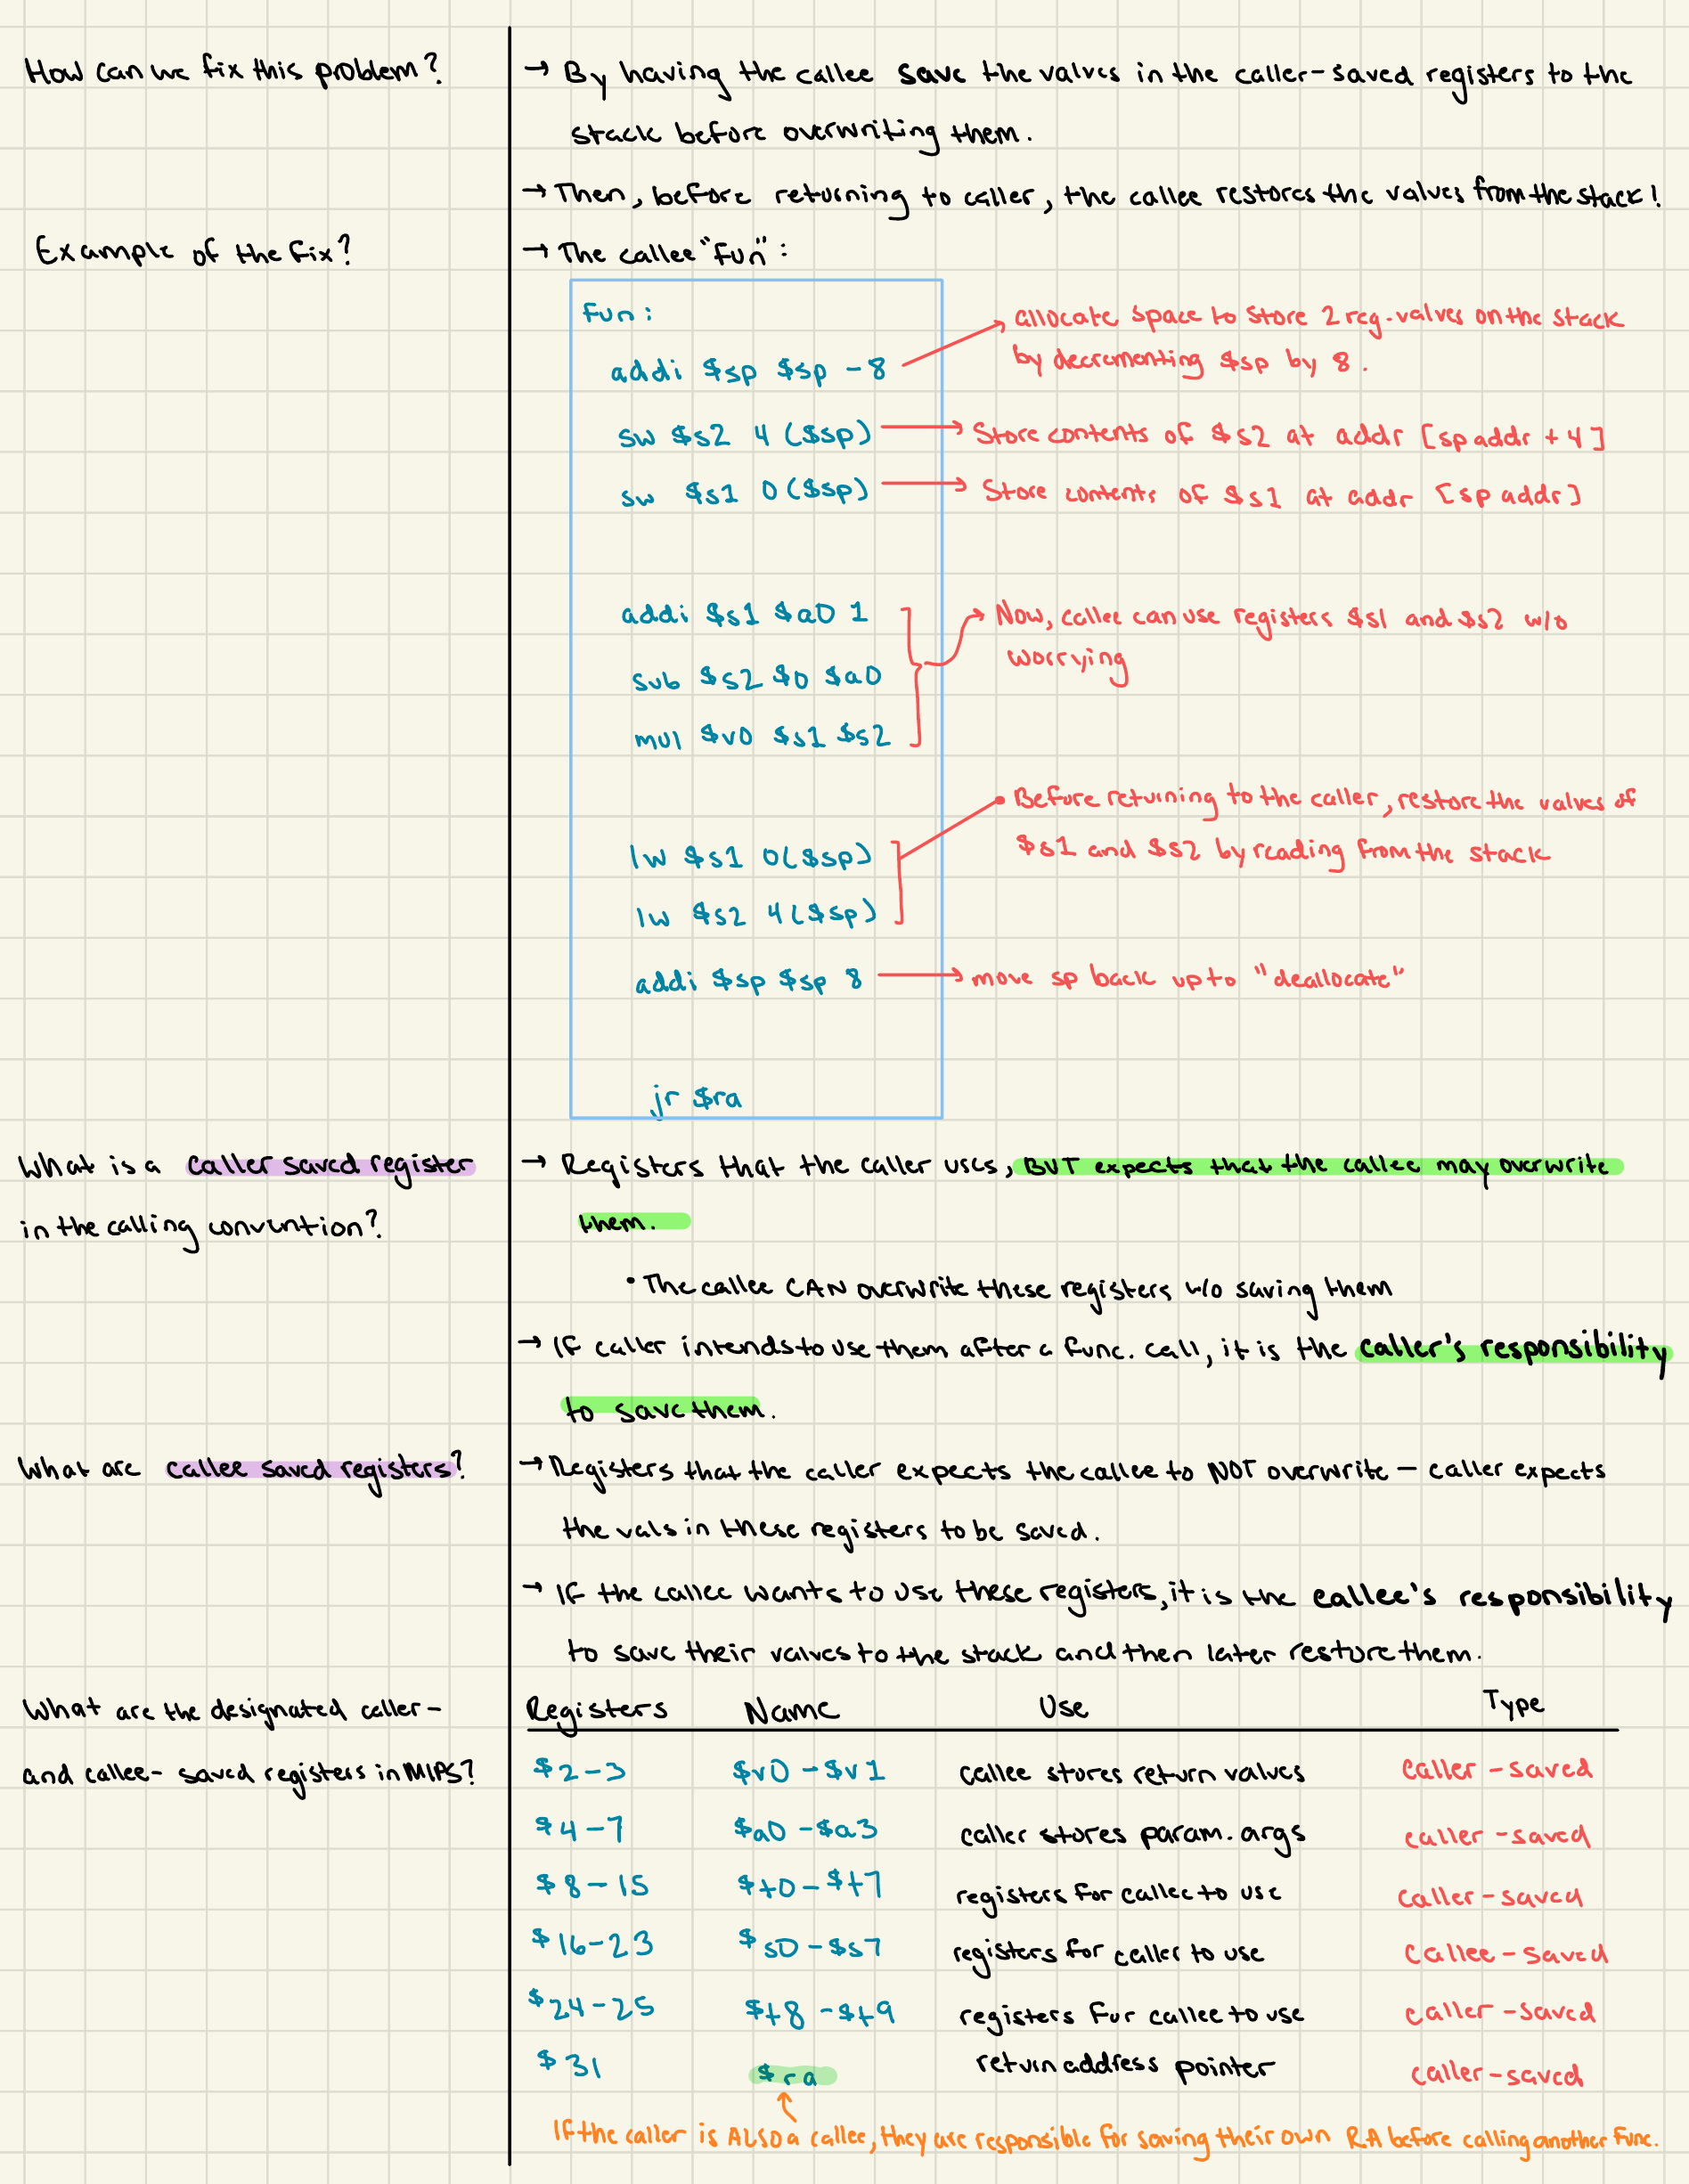 How can we fix this problem?
→ By having the callee save the values in the caller-saved registers to the
stack before overwriting them.
→ Then, before returning to caller, the callee restores the values from the stack!
Example of the fix?
→ The callee "fun":
fun:
addi $sp $sp -8
allocate space to store 2 reg. values on the stack
by decrementing $sp by 8.
sw $s2 4($sp)
Store contents of $s2 at addr [sp addr + 4]
sw $s1 0($sp)
Store contents of $s1 at addr [sp addr]
addi $s1 $a0 1
sub $s2 $0 $a0
mul $v0 $s1 $s2
Now, callee can use registers $s1 and $s2 w/o
worrying
• Before returning to the caller, restore the values of
$s1 and $s2 by reading from the stack
lw $s1 0($sp)
lw $s2 4($sp)
addi $sp $sp 8
move sp back up to "deallocate"
jr $ra
What is a caller saved register
in the calling convention?
→ Registers that the caller uses, BUT expects that the callee may overwrite
them.
• The callee CAN overwrite these registers w/o saving them
→ If caller intends to use them after a func. call, it is the caller's responsibility
to save them.
What are callee saved registers?
→ Registers that the caller expects the callee to NOT overwrite – caller expects
the vals in these registers to be saved.
→ If the callee wants to use these registers, it is the callee's responsibility
to save their values to the stack and then later restore them.
What are the designated caller-
and callee- saved registers in MIPS?
Registers Name Use Type
$2-3 $v0-$v1 callee stores return values caller-saved
$4-7 $a0-$a3 caller stores param. args caller-saved
$8-15 $t0-$t7 registers for callee to use caller-saved
$16-23 $s0-$s7 registers for caller to use callee-saved
$24-25 $t8-$t9 registers for callee to use caller-saved
$31 $ra return address pointer caller-saved
If the caller is ALSO a callee, they are responsible for saving their own RA before calling another func.